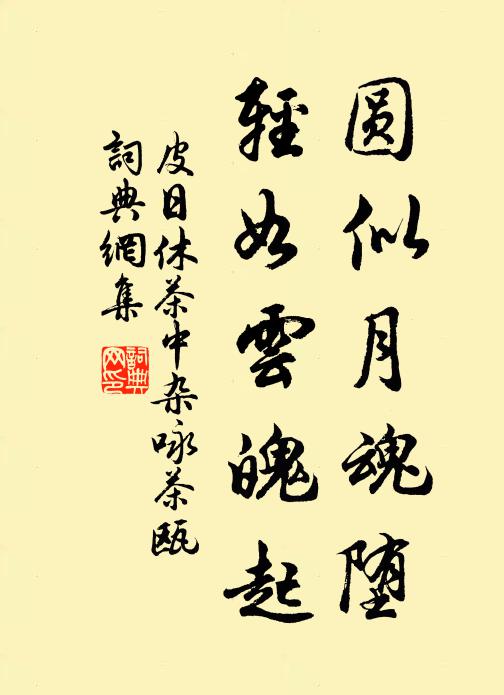 圆似月魂堕
輕如雲魄起
皮日休茶中杂咏茶瓯
詞典網集
詞典
网印